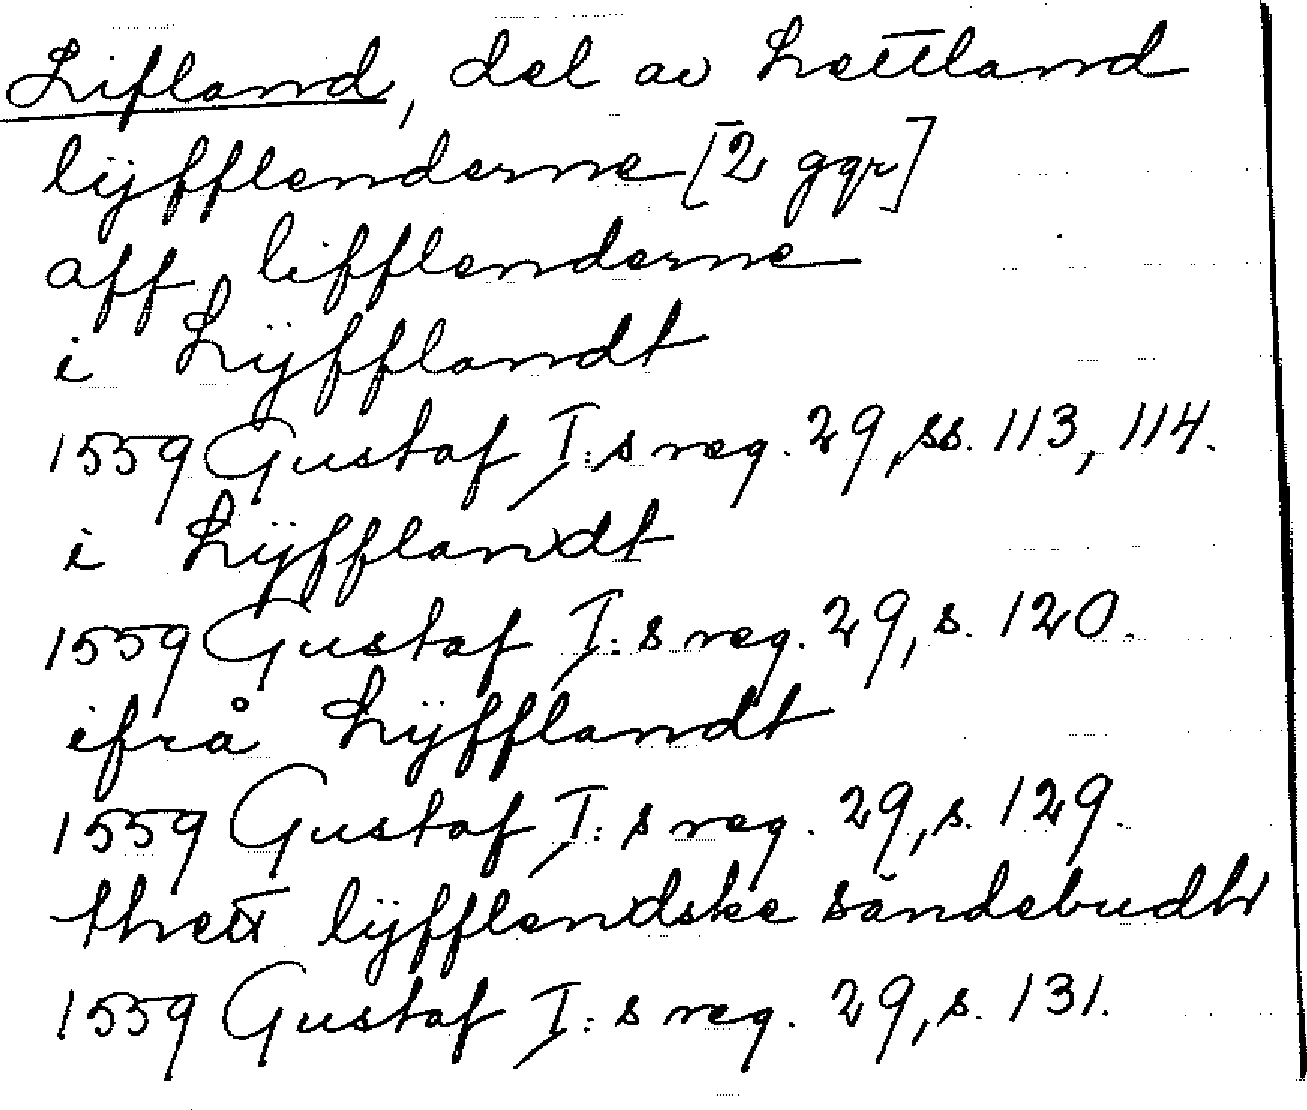 Lifland, del av Lettland
lÿfflenderne [2 ggr]
aff lifflenderne
i Lÿfflandt
1559 Gustaf I:s reg. 29, ss. 113, 114.
i Lÿfflandt
1559 Gustaf I:s reg. 29, s. 120.
ifrå Lÿfflandt
1559 Gustaf I:s reg. 29, s. 129.
thett lÿfflendske sändebudh
1559 Gustaf I:s reg. 29, s. 131.